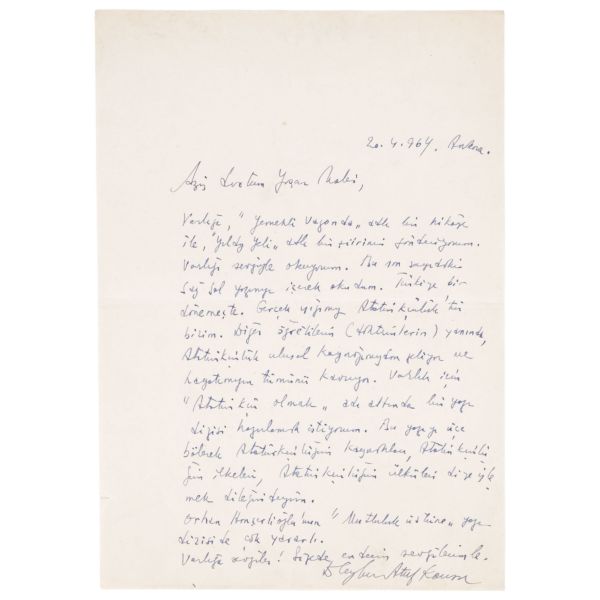 20.4.964. Ankara.
Aziz Dostum Yaşar Nabi,
Varlığa, "Yemekli Vagonda" adlı bir hikâye
ile, "Yıldız Yeli" adlı bir şiirimi gönderiyorum.
Varlığı sevgiyle okuyorum. Bu son sayıdaki
Sağ Sol yazınızı içerek okudum. Türkiye bir
dönemeçte. Gerçek ışığımız Atatürkçülük'tür
bizim. Diğer öğretilerin (doktrinlerin) yanında,
Atatürkçülük ulusal kaynağımızdan geliyor ve
hayatımızın tümünü kavrıyor. Varlık için
"Atatürkçü olmak" adı altında bir yazı
dizisi hazırlamak istiyorum. Bu yazıyı üçe
bölerek Atatürkçülüğün kaynakları, Atatürkçülü
ğün ilkeleri, Atatürkçülüğün ülküleri diye işle
mek dileğindeyim.
Orhan Hançerlioğlu'nun "Mutluluk üstüne" yazı
dizisi de çok yararlı.
Varlığa sevgiler! Size de en derin sevgilerimle.
Ceyhun Atuf Kansu